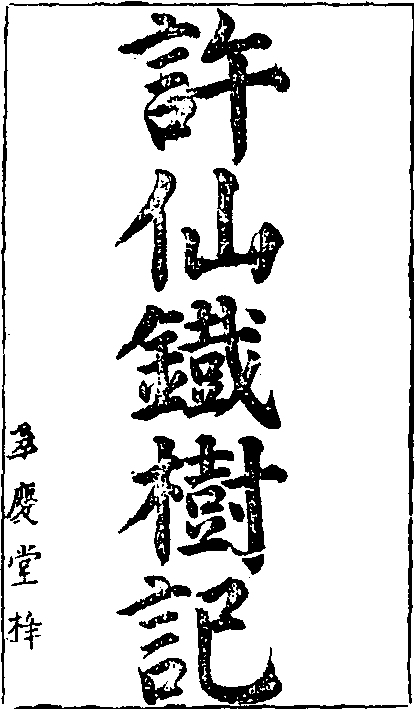 許仙鐵樹記
慶堂梓